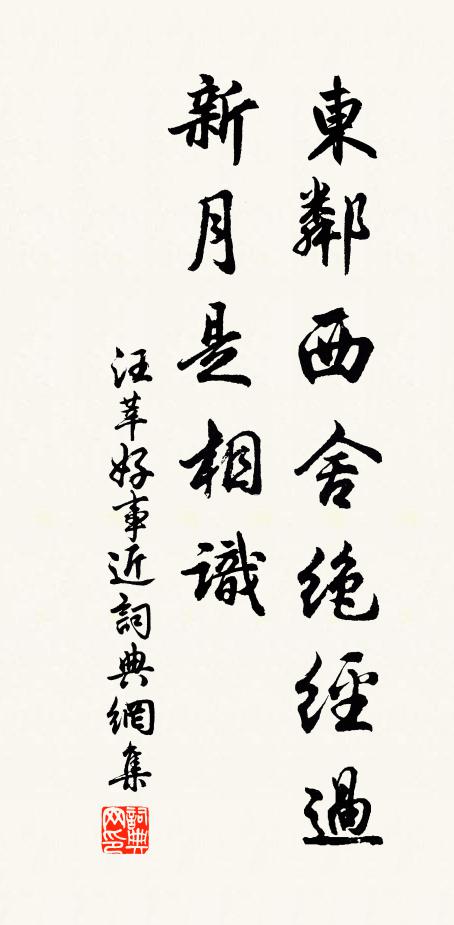 東鄰西舍絶經過
新月是相識
汪莘好事近詞典網集
詞典网印